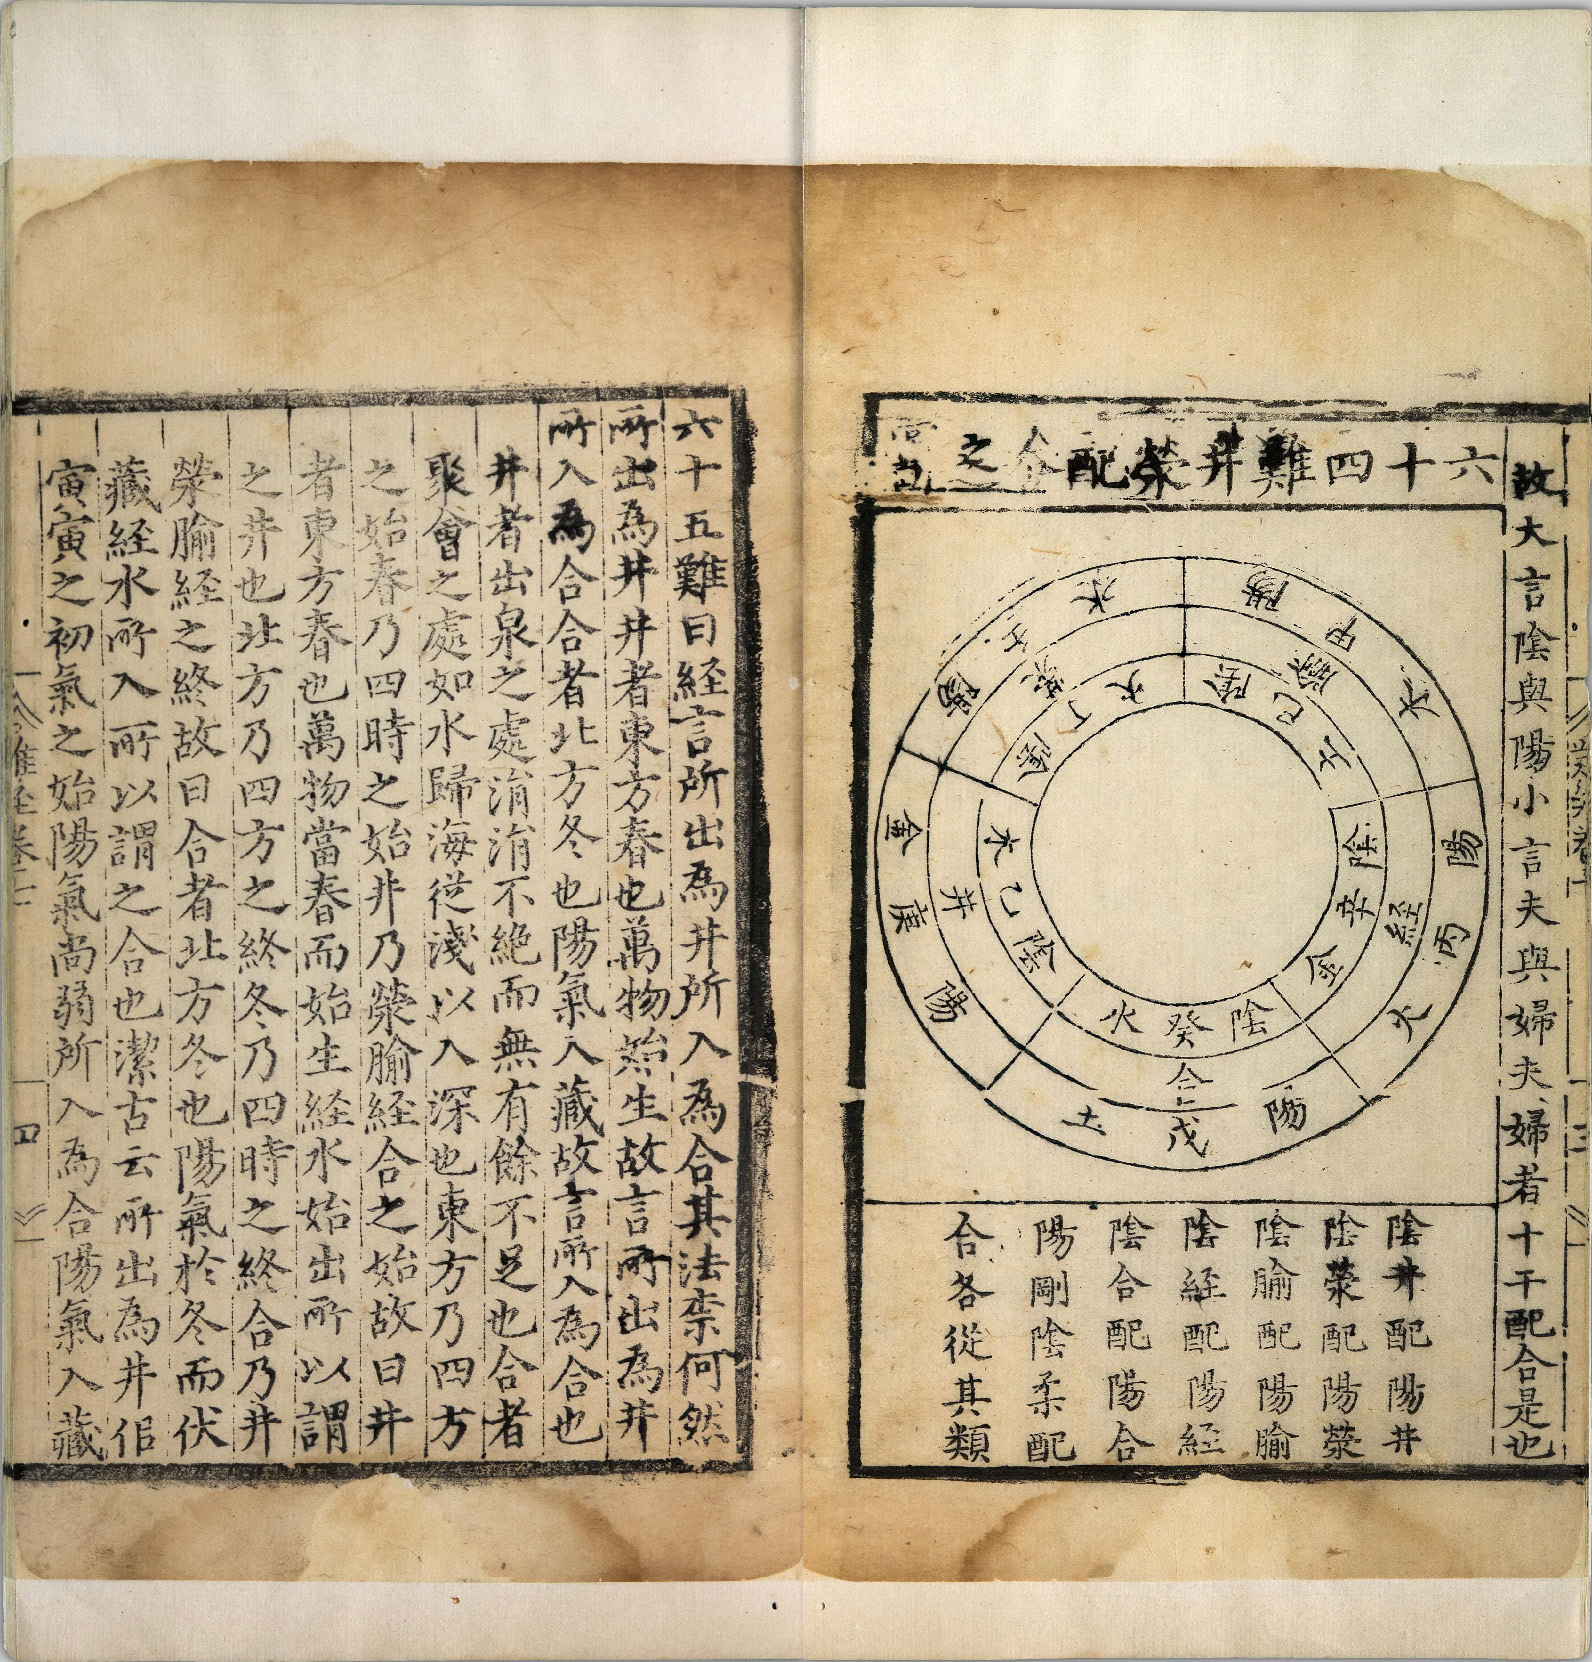 故大言陰與陽小言夫與婦夫婦者十干配合是也
六十四難井滎配合之圖
陽
甲
木
陽
丙
火
陽
戊
土
陽
庚
金
陽
壬
水
腧
経
合
井
滎
陰
己
土
陰
辛
金
陰
癸
火
陰
乙
木
陰
丁
火
陰井配陽井
陰滎配陽滎
陰腧配陽腧
陰経配陽経
陰合配陽合
陽剛陰柔配
合各從其類
六十五難曰経言所出為井所入為合其法柰何然
所出為井井者東方春也萬物始生故言所出為井
所入為合合者北方冬也陽氣入藏故言所入為合也
井者出泉之處涓涓不絶而無有餘不足也合者
聚會之處如水歸海従淺以入深也東方乃四方
之始春乃四時之始井乃滎腧経合之始故曰井
者東方春也萬物當春而始生経水始出所以謂
之井也北方乃四方之終冬乃四時之終合乃井
滎腧経之終故曰合者北方冬也陽氣於冬而伏
藏経水所入所以謂之合也潔古云所出為井佀
寅寅之初氣之始陽氣尚弱所入為合陽氣入藏
難経卷六
四